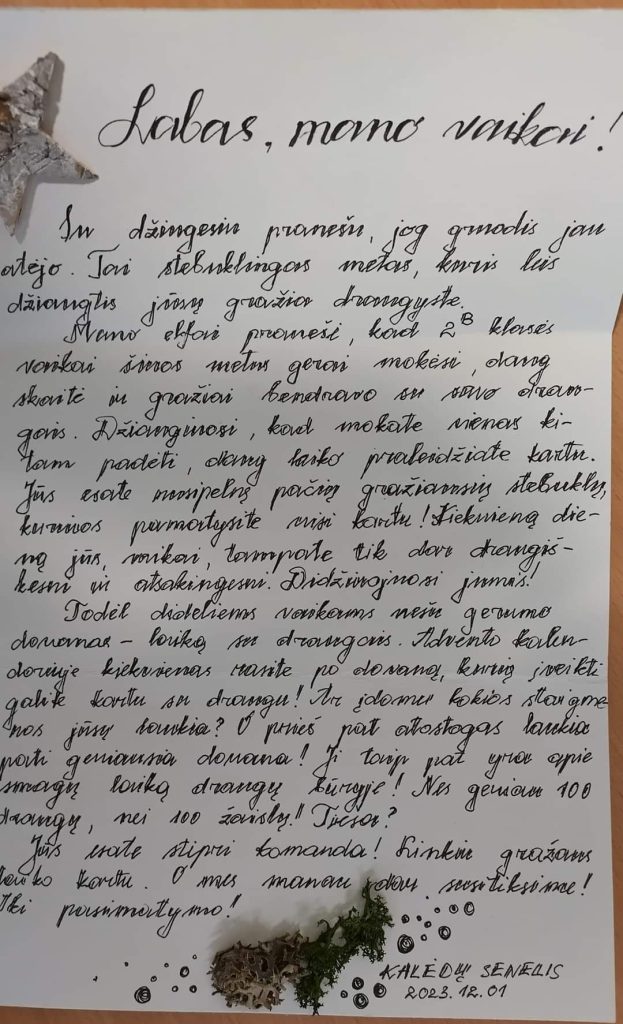 Labas, mano vaikai!
Su džiugesiu pranešu, jog gruodis jau
atėjo. Tai stebuklingas metas, kuris leis
džiaugtis jūsų gražia draugyste.
Mano elfai pranešė, kad 2B klasės
vaikai šiuos metus gerai mokėsi, daug
skaitė ir gražiai bendravo su savo drau-
gais. Džiaugiuosi, kad mokate vienas ki-
tam padėti, daug laiko praleidžiate kartu.
Jūs esate nusipelnę pačių gražiausių stebuklų,
kuriuos pamatysite visi kartu! Kiekvieną die-
ną jūs, vaikai, tampate tik dar draugiš-
kesni ir atsakingesni. Didžiuojuosi jumis!
Todėl dideliems vaikams nešu gerumo
dovanas – laiką su draugais. Advento kalen-
doriuje kiekvienas rasite po dovaną, kurią įveikti
galite kartu su draugu! Ar įdomu kokios staigme-
nos jūsų laukia? O prieš pat atostogas laukia
pati geriausia dovana! Ji taip pat yra apie
smagų laiką draugų būryje! Nes geriau 100
draugų, nei 100 žaislų!! Tiesa?
Jūs esate stipri komanda! Linkiu gražaus
laiko kartu. O mes manau dar susitiksime!
Iki pasimatymo!
KALĖDŲ SENELIS
2023.12.01